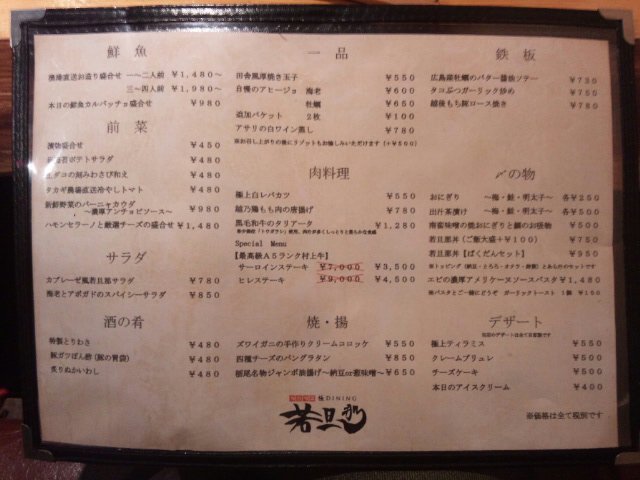 鮮魚
漁港直送お造り盛合せ 一～二人前 ￥1,480～
三～四人前 ￥1,980～
本日の鮮魚カルパッチョ盛合せ ￥980
前菜
漬物盛合せ ￥450
ポテトサラダ ￥480
生ダコの刻みわさび和え ￥480
タカギ農場直送冷やしトマト ￥480
新鮮野菜のバーニャカウダ ￥980
～濃厚アンチョビソース～
ハモンセラーノと厳選チーズの盛合せ ￥1,480
サラダ
カプレーゼ風若旦那サラダ ￥780
海老とアボガドのスパイシーサラダ ￥850
酒の肴
特製とりわさ ￥480
豚ガツぽん酢 (豚の胃袋) ￥480
炙りぬかいわし ￥480
一品
田舎風厚焼き玉子 ￥550
自慢のアヒージョ 海老 ￥650
牡蠣 ￥650
追加バケット 2枚 ￥100
アサリの白ワイン蒸し ￥780
※お召し上がりの後にリゾットもお愉しみいただけます (+￥500)
肉料理
極上白レバカツ ￥550
越乃鶏もも肉の唐揚げ ￥780
黒毛和牛のタリアータ ￥1,280
Special Menu
【最高級A5ランク村上牛】
サーロインステーキ ￥7,000 ￥3,500
ヒレステーキ ￥9,000 ￥4,500
焼・揚
ズワイガニの手作りクリームコロッケ ￥550
四種チーズのパングラタン ￥850
栃尾名物ジャンボ油揚げ～納豆or葱味噌～ ￥650
鉄板
広島産牡蠣のバター醤油ソテー ￥730
タコぶつガーリック炒め ￥750
越後もち豚ロース焼き ￥780
〆の物
おにぎり ～梅・鮭・明太子～ 各￥250
出汁茶漬け ～梅・鮭・明太子～ 各￥500
南蛮味噌の焼おにぎりと鯛のお吸物 ￥500
若旦那丼 (ご飯大盛+￥100) ￥750
若旦那丼【ばくだんセット】 ￥950
※トッピング (納豆・とろろ・オクラ・卵黄) とあらけのセットです
エビの濃厚アメリケーヌソースパスタ ￥1,480
※パスタとご一緒にどうぞ ガーリックトースト 1個 ￥150
デザート
極上ティラミス ￥550
クレームブリュレ ￥500
チーズケーキ ￥500
本日のアイスクリーム ￥400
DINING
若旦那
※価格は全て税別です